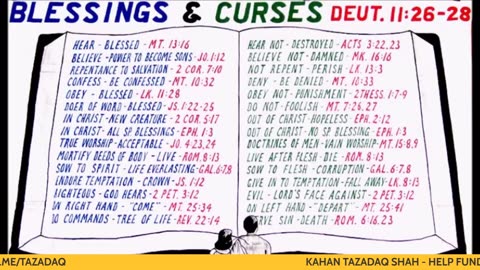 BLESSINGS & CURSES DEUT. 11:26-28
HEAR - BLESSED - MT. 13:16
BELIEVE - POWER TO BECOME SONS - JO. 1:12
REPENTANCE TO SALVATION - 2 COR. 7:10
CONFESS - BE CONFESSED - MT. 10:32
OBEY - BLESSED - LK. 11:28
DOER OF WORD - BLESSED - JS. 1:22-25
IN CHRIST - NEW CREATURE - 2 COR. 5:17
IN CHRIST - ALL SP BLESSINGS - EPH. 1:3
TRUE WORSHIP - ACCEPTABLE - JO. 4:23,24
MORTIFY DEEDS OF BODY - LIVE - ROM. 8:13
SOW TO SPIRIT - LIFE EVERLASTING - GAL. 6:7,8
ENDURE TEMPTATION - CROWN - JS. 1:12
RIGHTEOUS - GOD HEARS - 2 PET. 3:12
ON RIGHT HAND - "COME" - MT. 25:34
DO COMMANDS - TREE OF LIFE - REV. 22:14
HEAR NOT - DESTROYED - ACTS 3:22,23
BELIEVE NOT - DAMNED - MK. 16:16
NOT REPENT - PERISH - LK. 13:3
DENY - BE DENIED - MT. 10:33
OBEY NOT - PUNISHMENT - 2THESS 1:7-9
DO NOT - FOOLISH - MT. 7:26,27
OUT OF CHRIST - HOPELESS - EPH. 2:12
OUT OF CHRIST - NO SP BLESSING - EPH. 1:3
DOCTRINES OF MEN - VAIN WORSHIP - MT. 15:8,9
LIVE AFTER FLESH - DIE - ROM. 8:13
SOW TO FLESH - CORRUPTION - GAL. 6:7,8
GIVE IN TO TEMPTATION - FALL AWAY - LK. 8:13
EVIL - LORD'S FACE AGAINST - 2 PET. 3:12
ON LEFT HAND - "DEPART" - MT. 25:41
SERVE SIN - DEATH - ROM. 6:16,23
.ME/TAZADAQ
KAHAN TAZADAQ SHAH - HELP FUND